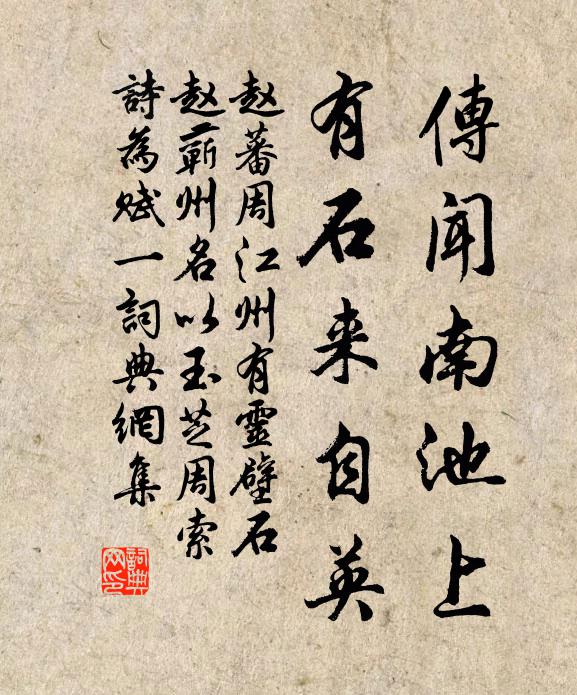 傳聞南池上
有石来自英
赵蕃周江州有靈壁石
赵蕲州名以玉芝周索
詩為賦一詞典網集
詞典网印